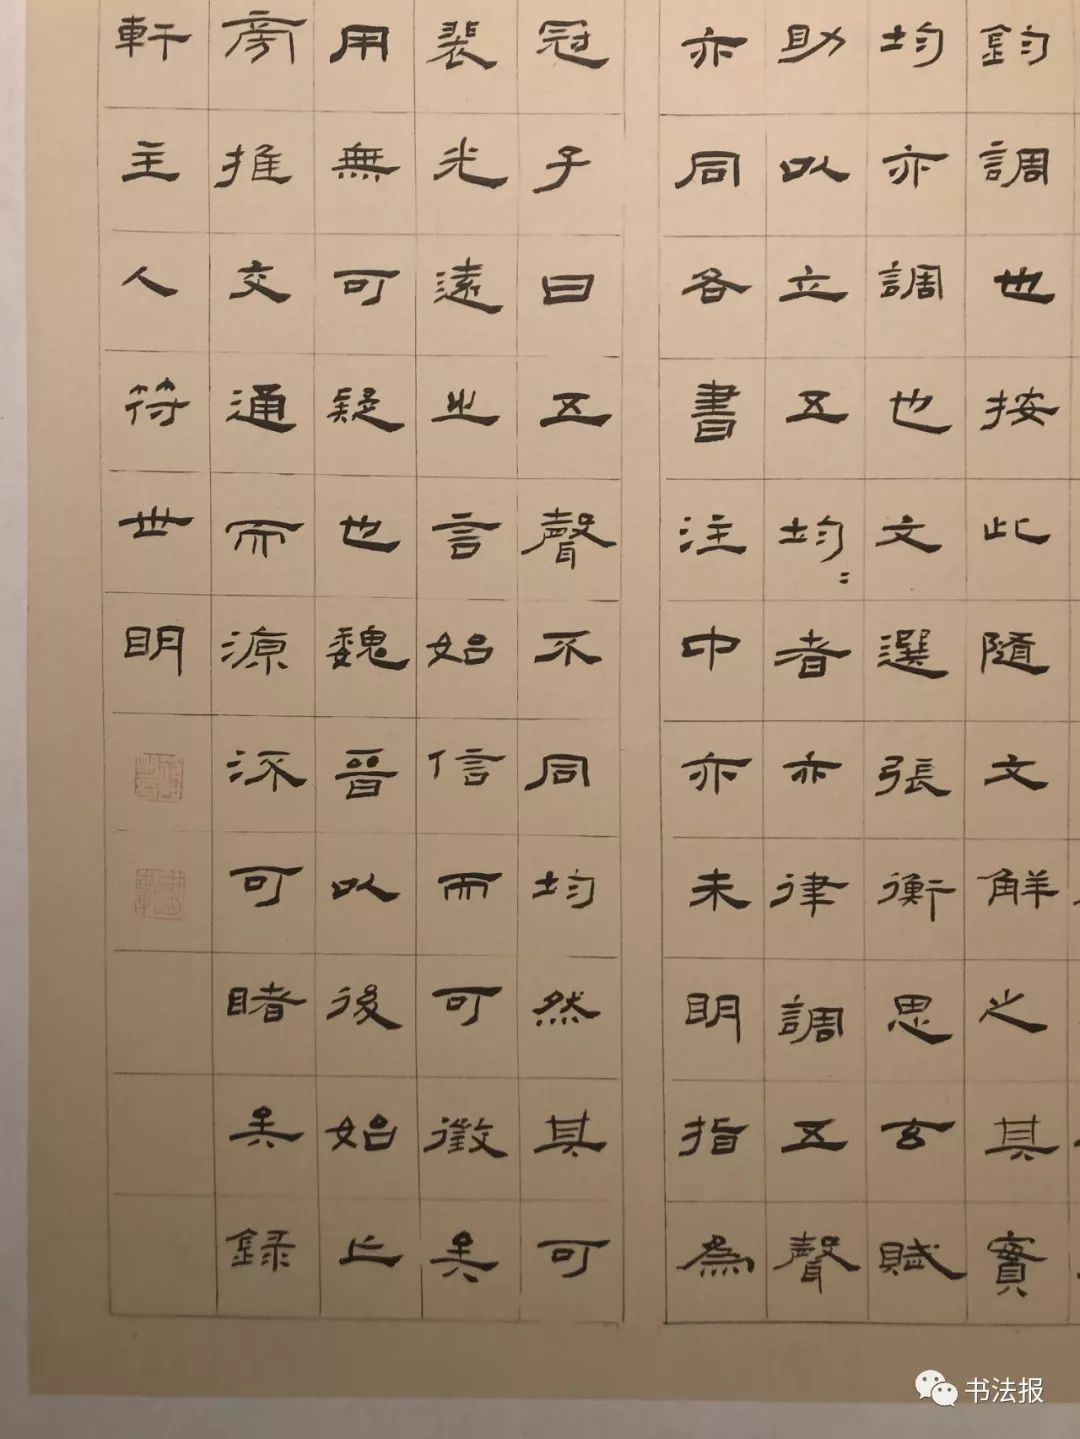 鈞調也按此隨文解之其實
均亦調也文選張衡思玄賦
助以立五均〻者亦律調五聲
亦同各書注中亦未明指為
冠子曰五聲不同均然其可
裴光遠之言始信而可徵矣
用無可疑也魏晉以後始止
旁推交通而源泝可睹矣錄
軒主人符世明
书法报